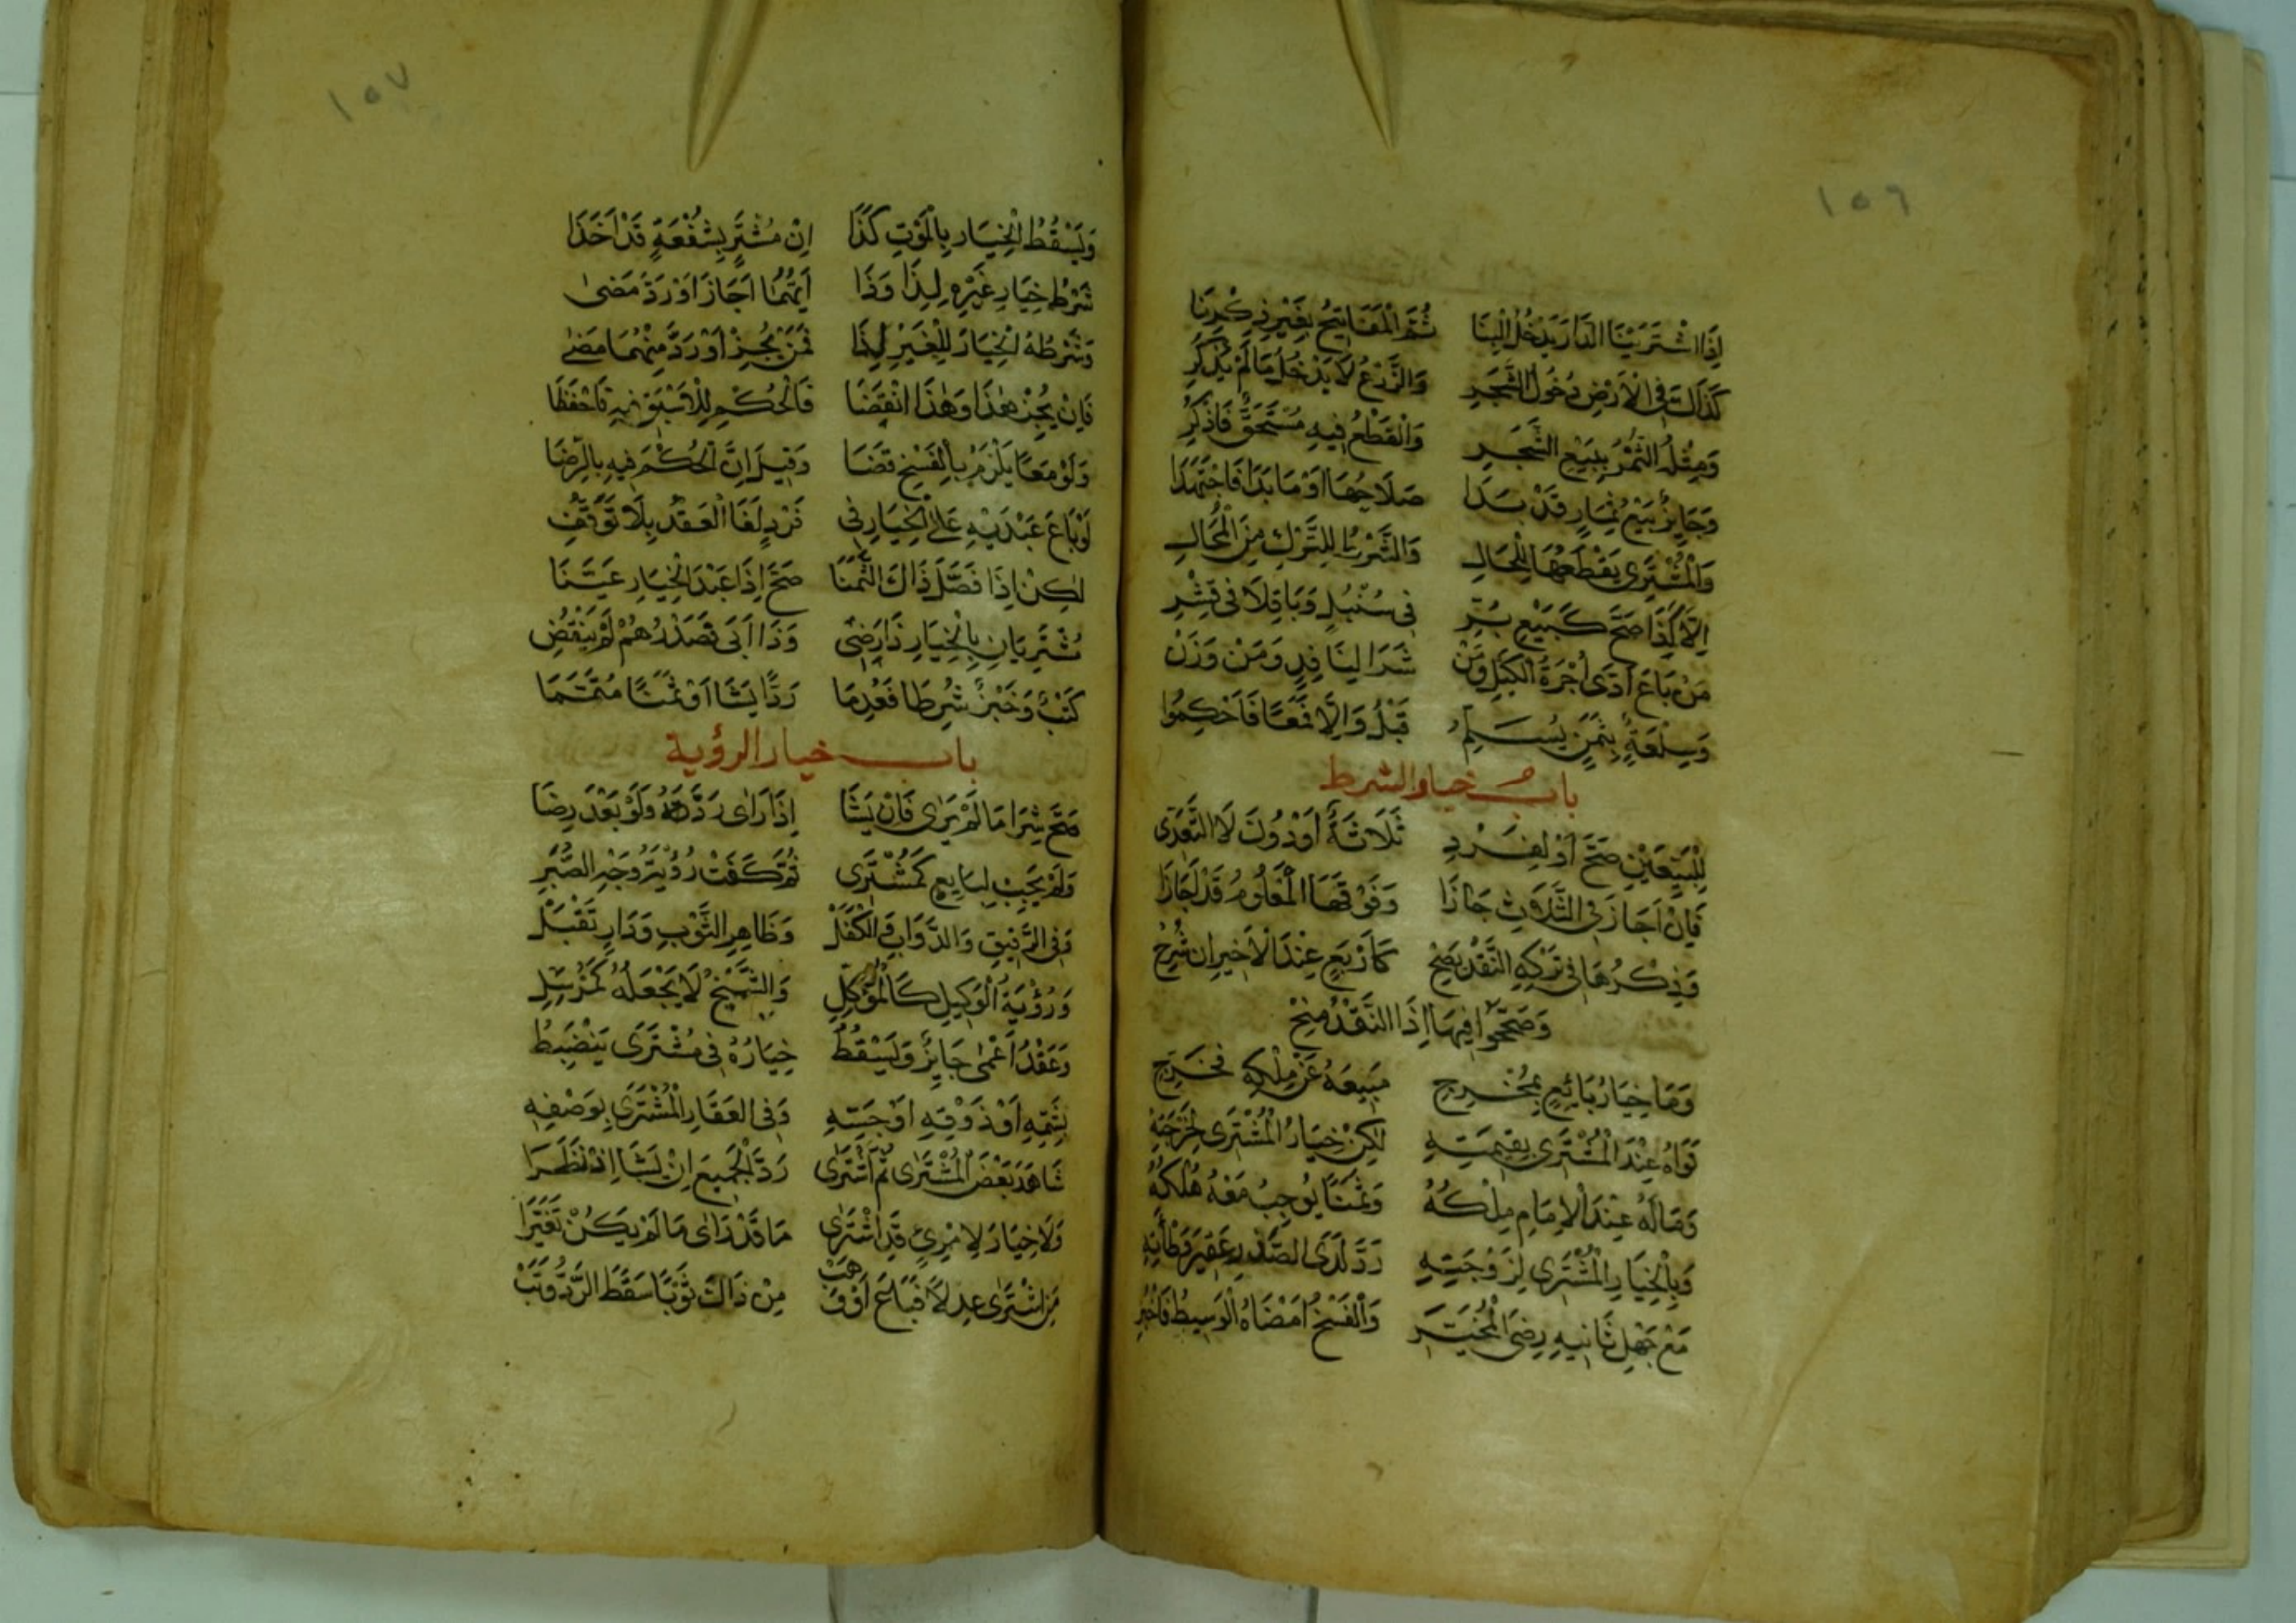 ١٥٦
إِذَا اشْتَرَيْنَا الدَّارَ يَدْخُلُ الْبِنَا ثُمَّ الْمَفَاتِيحُ بِغَيْرِ ذِكْرِنَا
كَذَاكَ فِي الْأَرْضِ دُخُولُ الشَّجَرِ وَالزَّرْعُ لَا يَدْخُلُ مَا لَمْ يُذْكَرِ
وَمِثْلُهُ الثَّمَرُ بِبَيْعِ الشَّجَرِ وَالْقَطْعُ فِيهِ مُسْتَحَقٌّ فَاذْكُرِ
وَجَايِزٌ بَيْعُ ثِمَارٍ قَدْ بَدَا صَلَاحُهَا أَوْ مَا بَدَا فَاجْتَهِدَا
وَالْمُشْتَرِي يَقْطَعُهَا لِلْحَالِ وَالشَّرْطُ لِلتَّرْكِ مِنَ الْمُحَالِ
كَذَا صَحَّ كَبَيْعِ بُرِّ فِي سُنْبُلٍ وَبَاقِلَا فِي قِشْرِ
مَنْ بَاعَ أَدَّى أُجْرَةَ الْكَيْلِ وَمَنْ شَرَا لِنَاقِدٍ وَمَنْ وَزَنْ
وَسِلْعَةٌ بِثَمَنٍ يُسَلَّمُ قَبْلُ وَإِلَّا فَمَعًا فَاحْكِمُوا
بابُ خيار الشرط
لِلْبَيِّعَيْنِ صَحَّ أَوْ لِفَرْدِ ثَلَاثَةٌ أَوْ دُونَ لَا التَّعَدِّي
فَإِنْ أَجَازَ فِي الثَّلَاثِ جَازَا وَفَوْقَهَا الْمَعْلُومُ قَدْ أَجَازَا
وَذِكْرُهَا فِي تَرْكِهِ النَّقْدَ يَصِحْ كَأَرْبَعٍ عِنْدَ الْأَخِيرِ إِنْ شُرِحْ
وَصَحَّحُوا فِيهَا إِذَا النَّقْدُ مُنِحْ
وَمَا خِيَارُ بَائِعٍ بِمُخْرِجِ مَبِيعَهُ عَنْ مِلْكِهِ فَخَرِّجِ
تَوَاهُ عِنْدَ الْمُشْتَرِي بِقِيمَتِهِ لَكِنْ خِيَارُ الْمُشْتَرِي
وَمَالَهُ عِنْدَ الْإِمَامِ مِلْكُهُ وَثَمَنًا يُوجِبُ مَعْهُ هُلْكُهُ
وَبِالْخِيَارِ الْمُشْتَرِي لِزَوْجَتِهِ رَدَّ لَدَى الصَّدْرِ
مَعْ جَهْلِ ثَانِيهِ رِضَى الْمُخَيَّرِ وَالْفَسْخُ أَمْضَاهُ الْوَسِيطُ
١٥٧
وَيَسْقُطُ الْخِيَارُ بِالْمَوْتِ كَذَا إِنْ مُشْتَرٍ بِشُفْعَةٍ قَدْ أَخَذَا
شَرْطُ خِيَارِ غَيْرِهِ لِذَا وَذَا أَيُّهُمَا أَجَازَ أَوْ رَدَّ مَضَى
وَشَرْطُهُ الْخِيَارَ لِلْغَيْرِ لِذَا فَمَنْ يُجِزْ أَوْ رَدَّ مِنْهُمَا مَضَى
فَإِنْ يُجِزْ هٰذَا وَهٰذَا انْقَضَا فَالْحُكْمُ لِلْأَسْبَقِ فِيهِ فَاحْفَظَا
وَلَوْ مَعًا يَلْزَمُ بِالْفَسْخِ قَضَا وَقِيلَ إِنَّ الْحُكْمَ فِيهِ بِالرِّضَا
لَوْ بَاعَ عَبْدَيْهِ عَلَى الْخِيَارِ فِي فَرْدٍ لَغَا الْعَقْدُ بِلَا تَوَقُّفِ
لٰكِنْ إِذَا فَصَّلَ ذَاكَ الثَّمَنَا صَحَّ إِذَا عَبْدَ الْخِيَارِ عَيَّنَا
مُشْتَرِيَانِ بِالْخِيَارِ ذَا رَضِي وَذَا أَبَى فَصَدْرُهُمْ لَمْ يَنْقُضِ
كَتْبٌ وَخَبْزٌ شُرِطَا فَعُدِمَا رَدًّا يَشَا أَوْ ثَمَنًا مُتَمَّمَا
باب خيار الرؤية
صَحَّ شِرَا مَا لَمْ يَرَى فَإِنْ يَشَا إِذَا رَأَى رَدَّ وَلَوْ بَعْدَ رِضَا
وَلَمْ يَجِبْ لِبَايِعٍ كَمُشْتَرِي ثُمَّ كَفَتْ رُؤْيَةُ وَجْهِ الصُّبَرِ
وَفِي الرَّقِيقِ وَالدَّوَابِ فِي الْكَفَلْ وَظَاهِرِ الثَّوْبِ وَدَارٍ تُقْبَلْ
وَرُؤْيَةُ الْوَكِيلِ كَالْمُوَكِّلِ وَالشَّيْخُ لَا يَجْعَلُهُ كَمُرْسَلِ
وَعَقْدُ أَعْمَى جَايِزٌ وَيَسْقُطُ خِيَارُهُ فِي مُشْتَرًى يَنْضَبِطُ
بِشَمِّهِ أَوْ ذَوْقِهِ أَوْ جَسِّهِ وَفِي الْعَقَارِ الْمُشْتَرَى بِوَصْفِهِ
شَاهَدَ بَعْضَ الْمُشْتَرَى ثُمَّ اشْتَرَى رَدَّ الْجَمِيعَ إِنْ يَشَا إِذْ نَظَرَا
وَلَا خِيَارَ لِامْرِئٍ قَدِ اشْتَرَى مَا قَدْ رَأَى مَا لَمْ يَكُنْ تَغَيَّرَا
مَنِ اشْتَرَى عِدْلًا فَبَاعَ أَوْ وَهَبْ مِنْ ذَاكَ ثَوْبًا سَقَطَ الرَّدُّ وَتَبْ